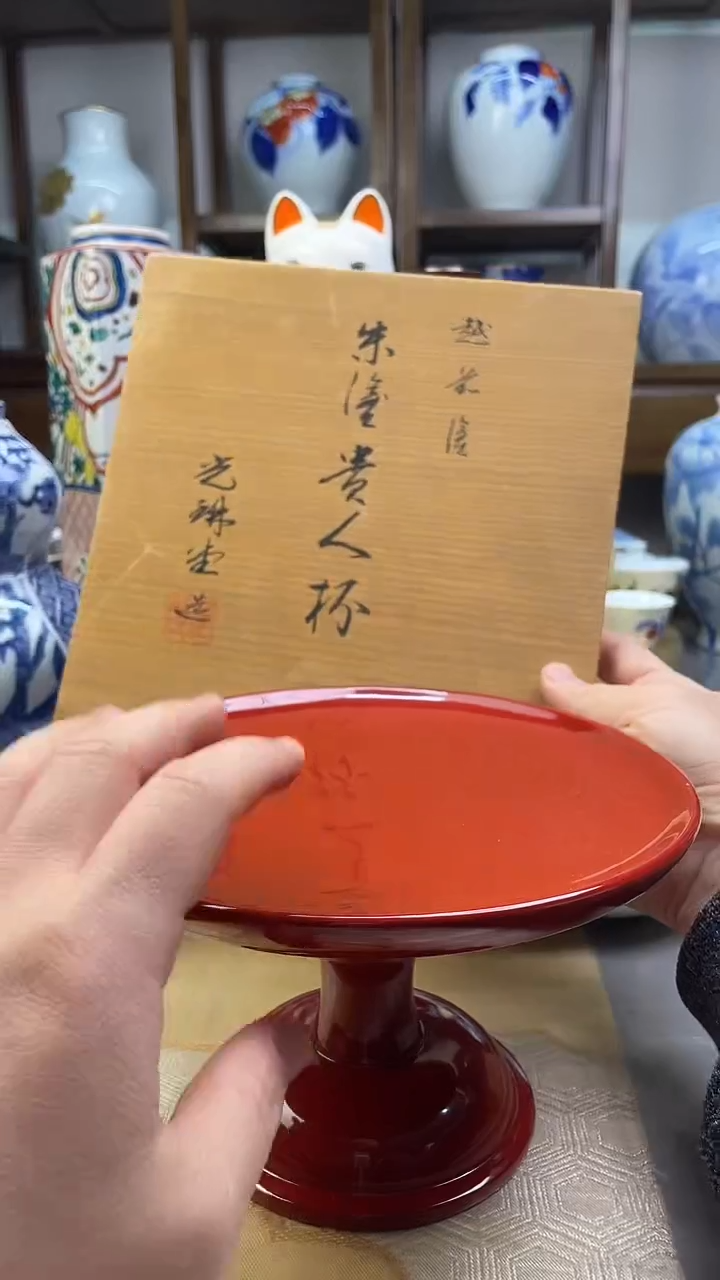 越前塗
朱塗貴人杯
光琳堂造